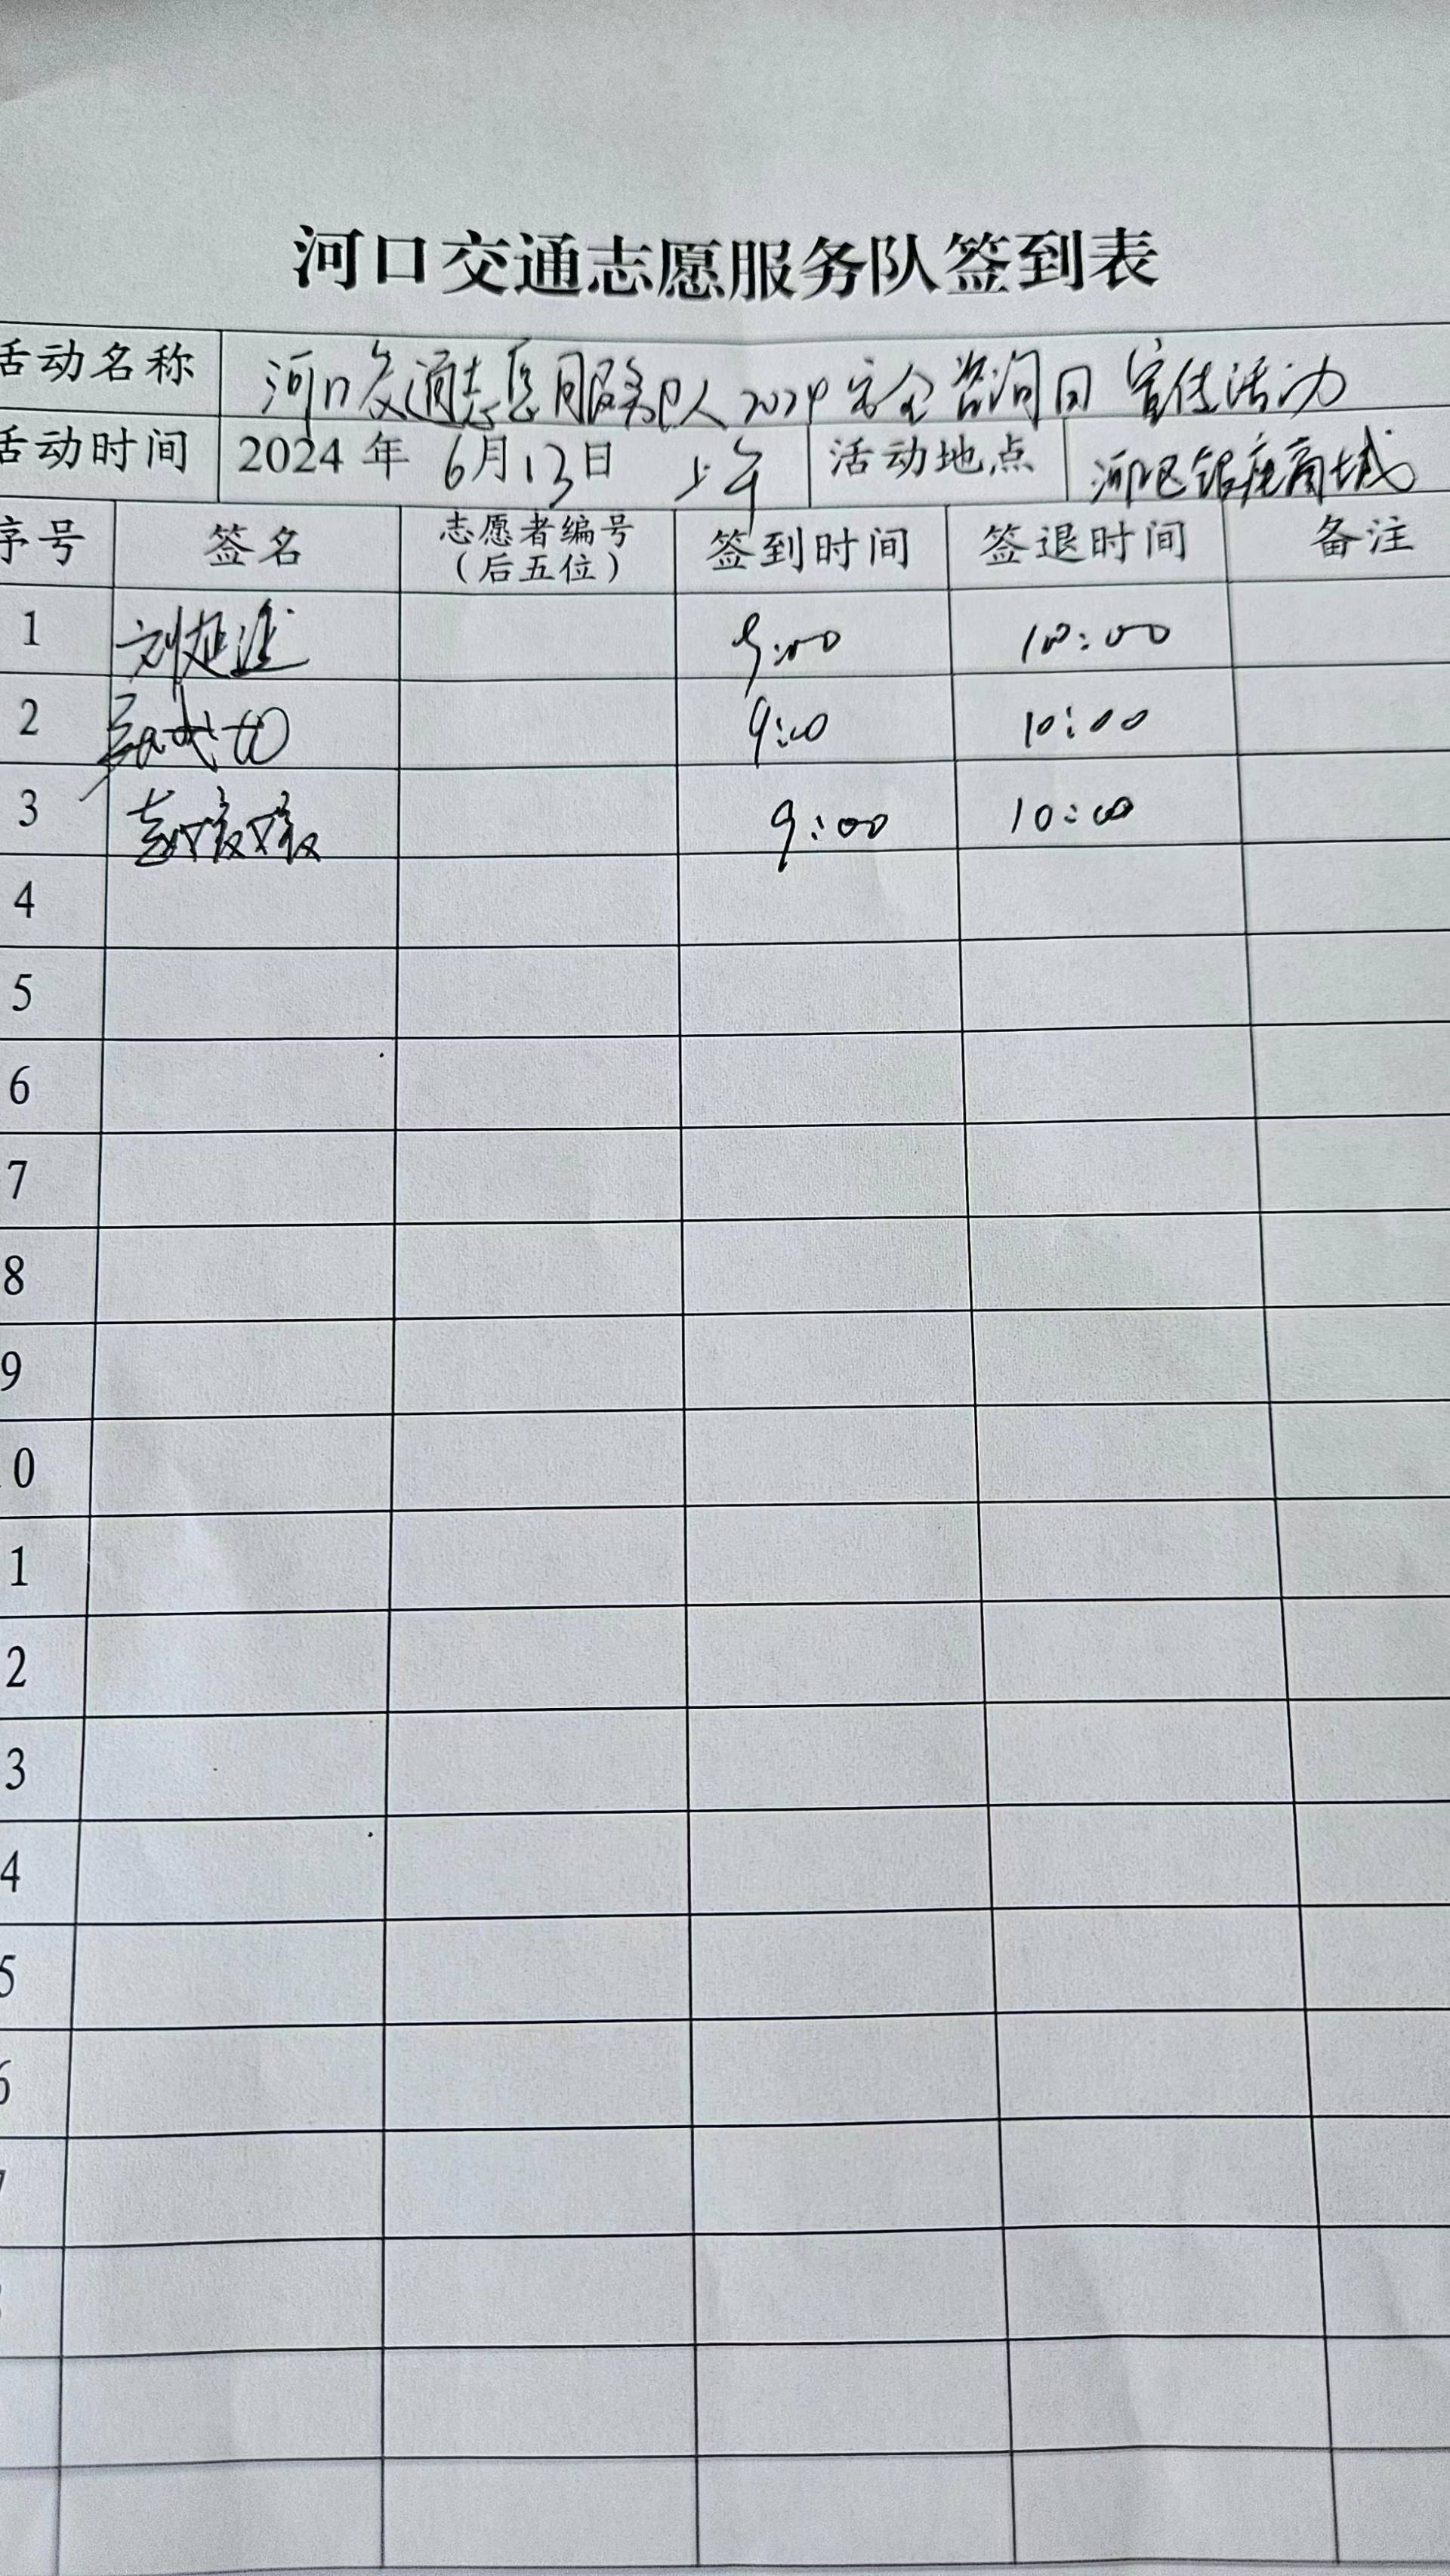 河口交通志愿服务队签到表
活动名称 河口交通志愿服务队2024安全咨询日宣传活动
活动时间 2024年 6月13日 上午 活动地点 河口区银座商城
序号 签名 志愿者编号（后五位） 签到时间 签退时间 备注
1 刘延 9:00 10:00
2 9:00 10:00
3 彭媛媛 9:00 10:00
4
5
6
7
8
9
0
1
2
3
4
5
6
7